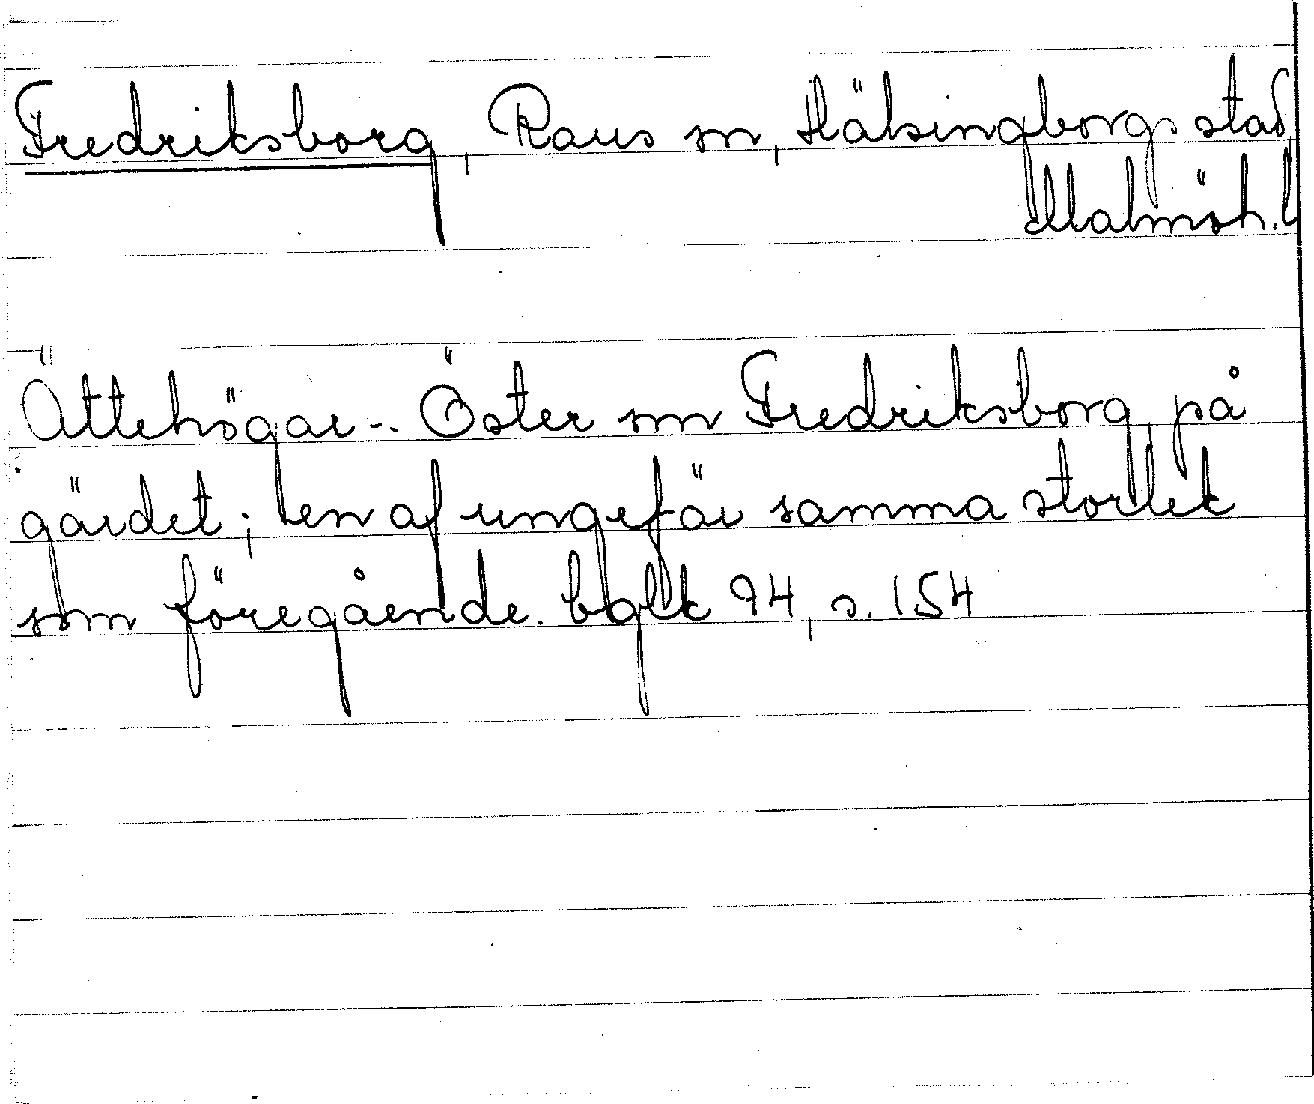 Fredriksborg, Raus sn, Hälsingborgs stad,
Malmöh. l
Ättehögar -. Öster om Fredriksborg, på
gärdet; en af ungefär samma storlek
som föregående. bglk 94, s. 154